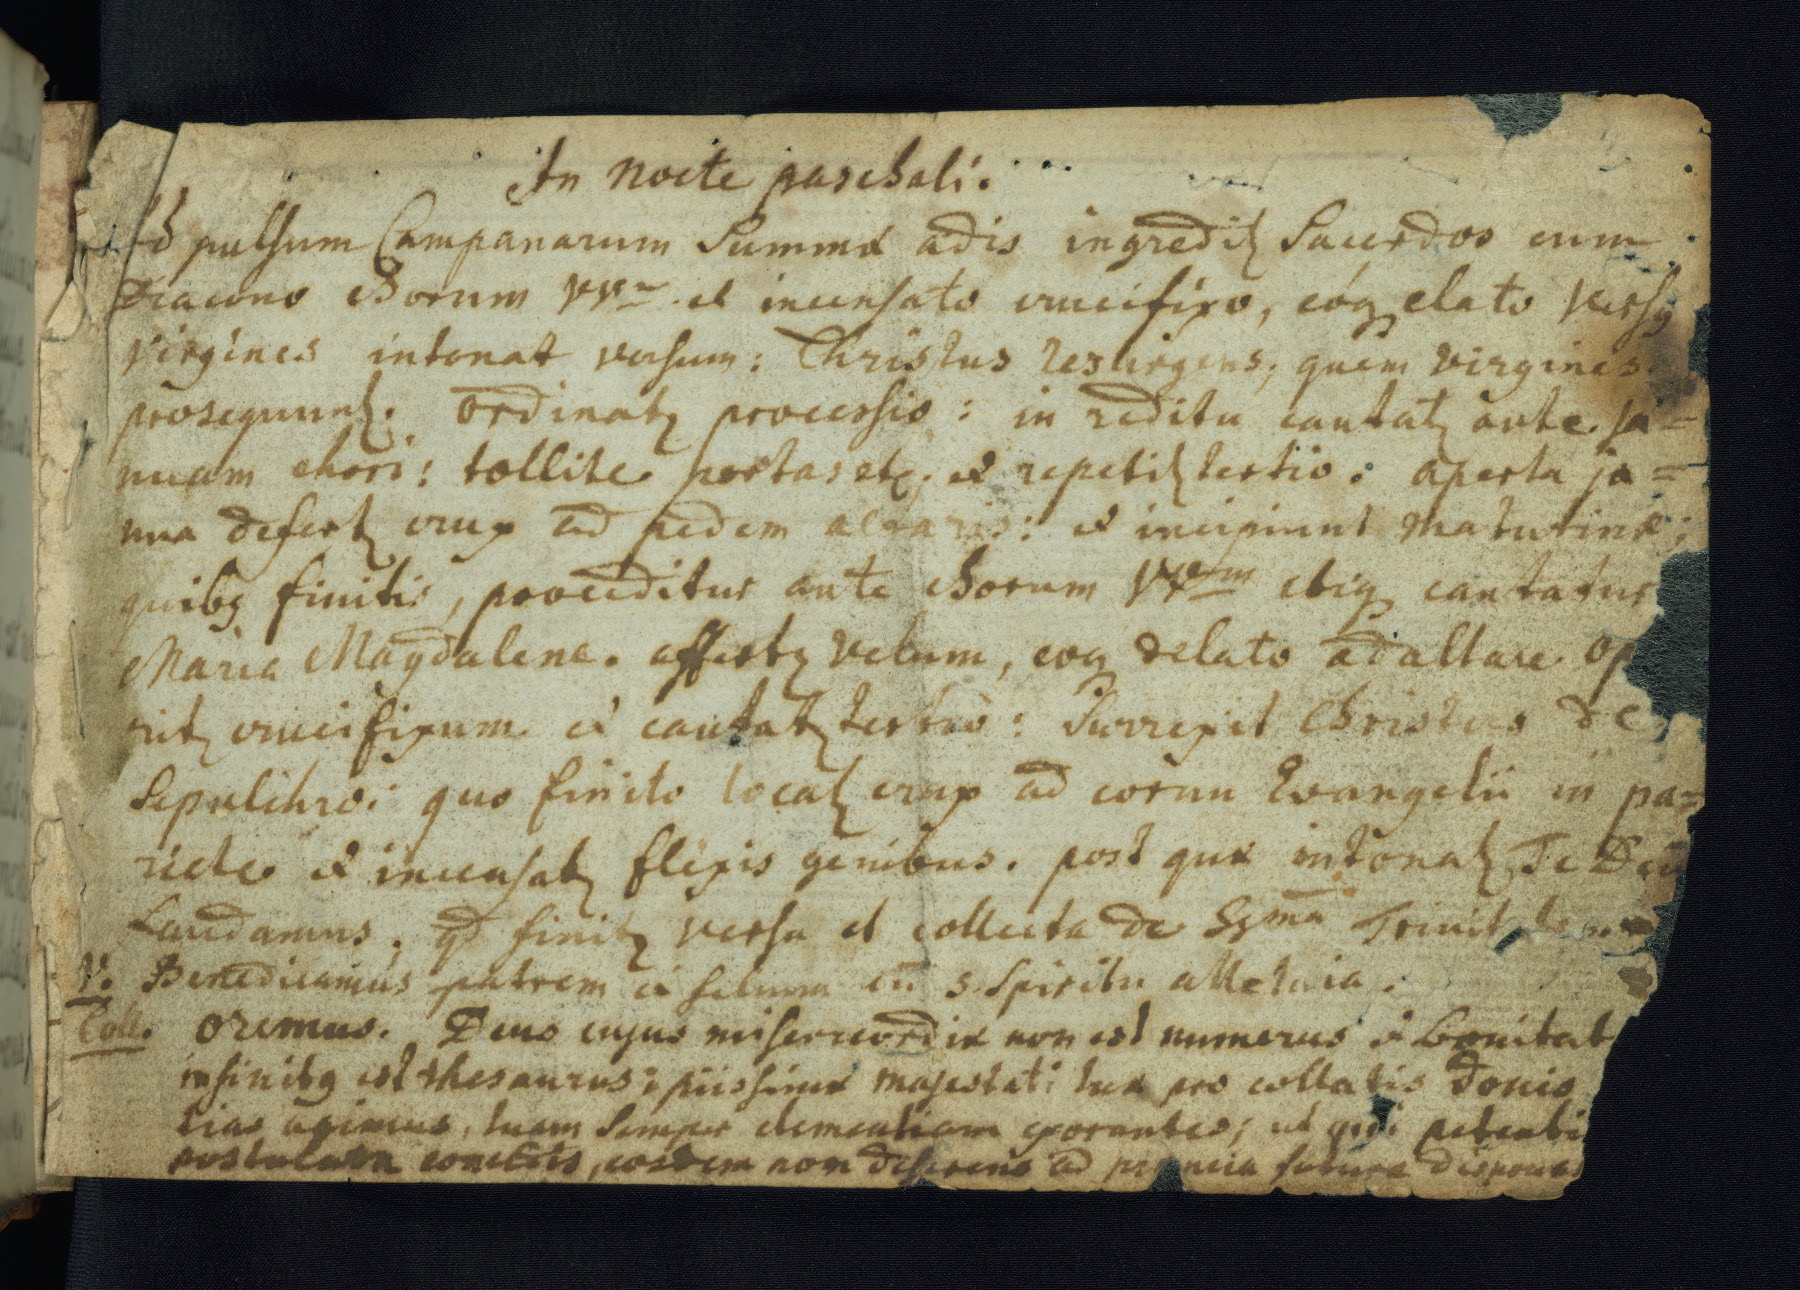 In nocte paschali.
Ad pulsum Campanarum Summæ ædis ingredit[ur] Sacerdos cum
Diacono chorum VV^m et incensato crucifixo, eoq[ue] elato versus
Virgines intonat versum: Christus resurgens, quem virgines
prosequunt[ur]. Ordinat[ur] processio: in reditu cantat[ur] ante ja=
nuam chori: tollite portas etc, et repetit[ur] tertio: aperta ja=
nua defert[ur] crux ad pedem altaris: et incipiunt Matutinæ;
quib[us] finitis, proceditur ante chorum VV^m ibiq[ue] cantatur
Maria Magdalena. affert[ur] velum, eoq[ue] delato ad altare op
rit[ur] crucifixum et cantat[ur] tertio: Surrexit Christus de
Sepulchro: quo finito locat[ur] crux ad cornu Evangelii in pa=
riete et incensat[ur] flexis genibus. post quæ intonat[ur] Te Deū
Laudamus, qd finit[ur] versu et collecta de SS^ma Trinitate
V. Benedicamus patrem et filium cū s. Spiritu alleluia.
Coll. Oremus. Deus cujus misericordiæ non est numerus et bonitat
infinit[us] est thesaurus; piissimæ majestati tuæ pro collatis donis
tias agimus, tuam semper clementiam exorantes; ut qui petenti
postulata concedis, eosdem non deserens ad præmia futura dispona